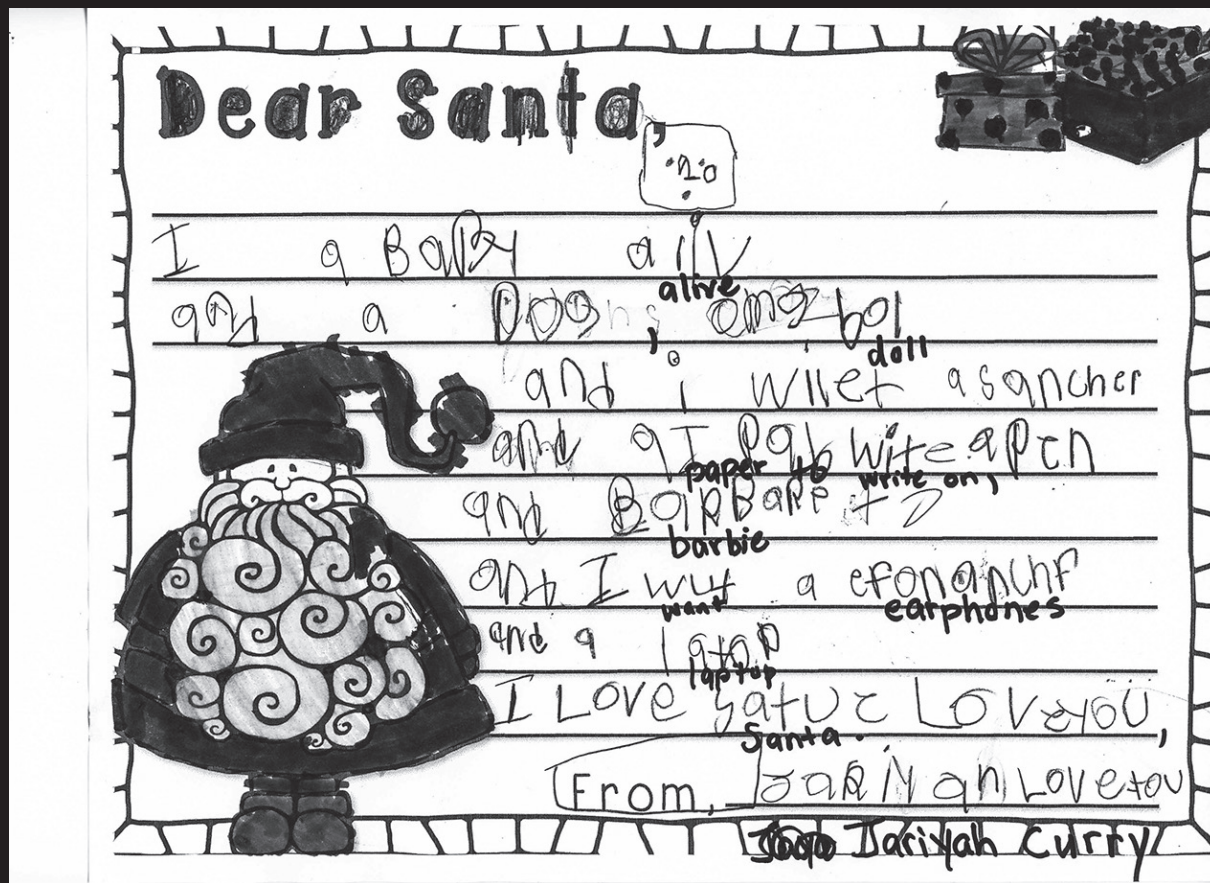 Dear Santa,
I a BaBy aliv
alive
and a omg dol
doll
and i wilet a sancher
and a I Pap wite a pen
paper to write on,
and BarBare
barbie
and I wut a efonanchf
want earphones
and a latop
laptop
I Love satuc Love you,
Santa.
From, Jariyah Love you
Jariyah Curry